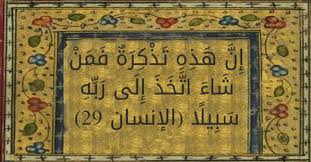 إِنَّ هَذِهِ تَذْكِرَةٌ فَمَنْ
شَاءَ اتَّخَذَ إِلَى رَبِّهِ
سَبِيلًا (الإنسان 29)